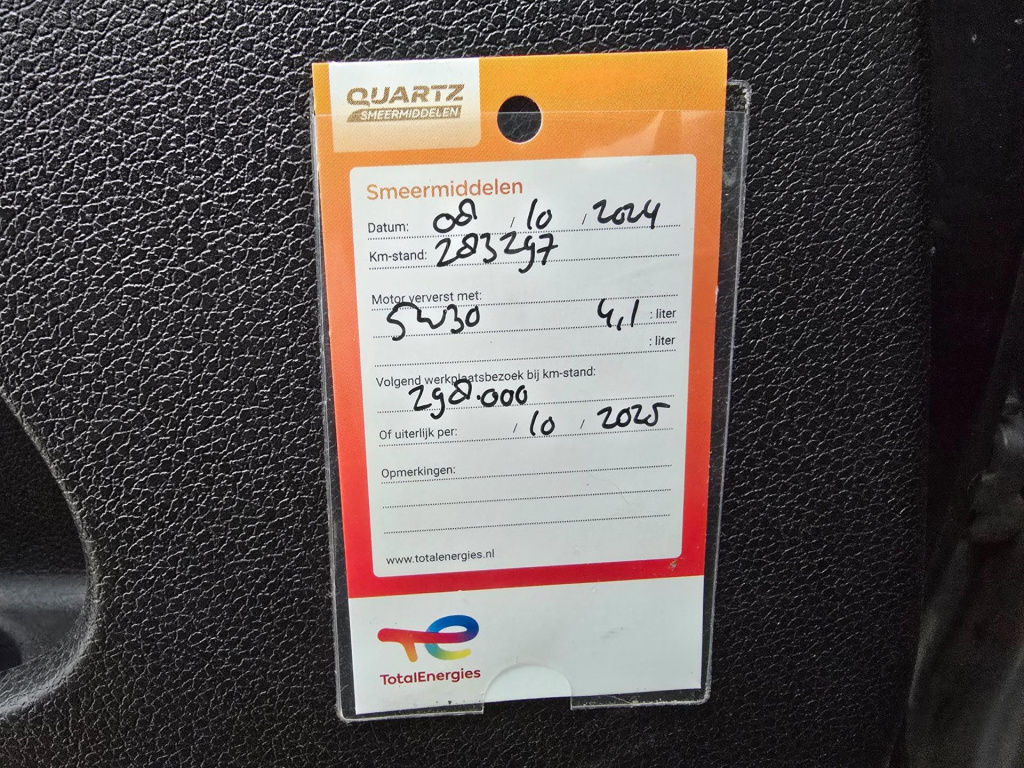 QUARTZ
SMEERMIDDELEN
Smeermiddelen
Datum: 08 / 10 / 2024
Km-stand: 283297
Motor ververst met:
5W30 4,1 : liter
: liter
Volgend werkplaatsbezoek bij km-stand:
298.000
Of uiterlijk per: / 10 / 2025
Opmerkingen:
www.totalenergies.nl
TotalEnergies